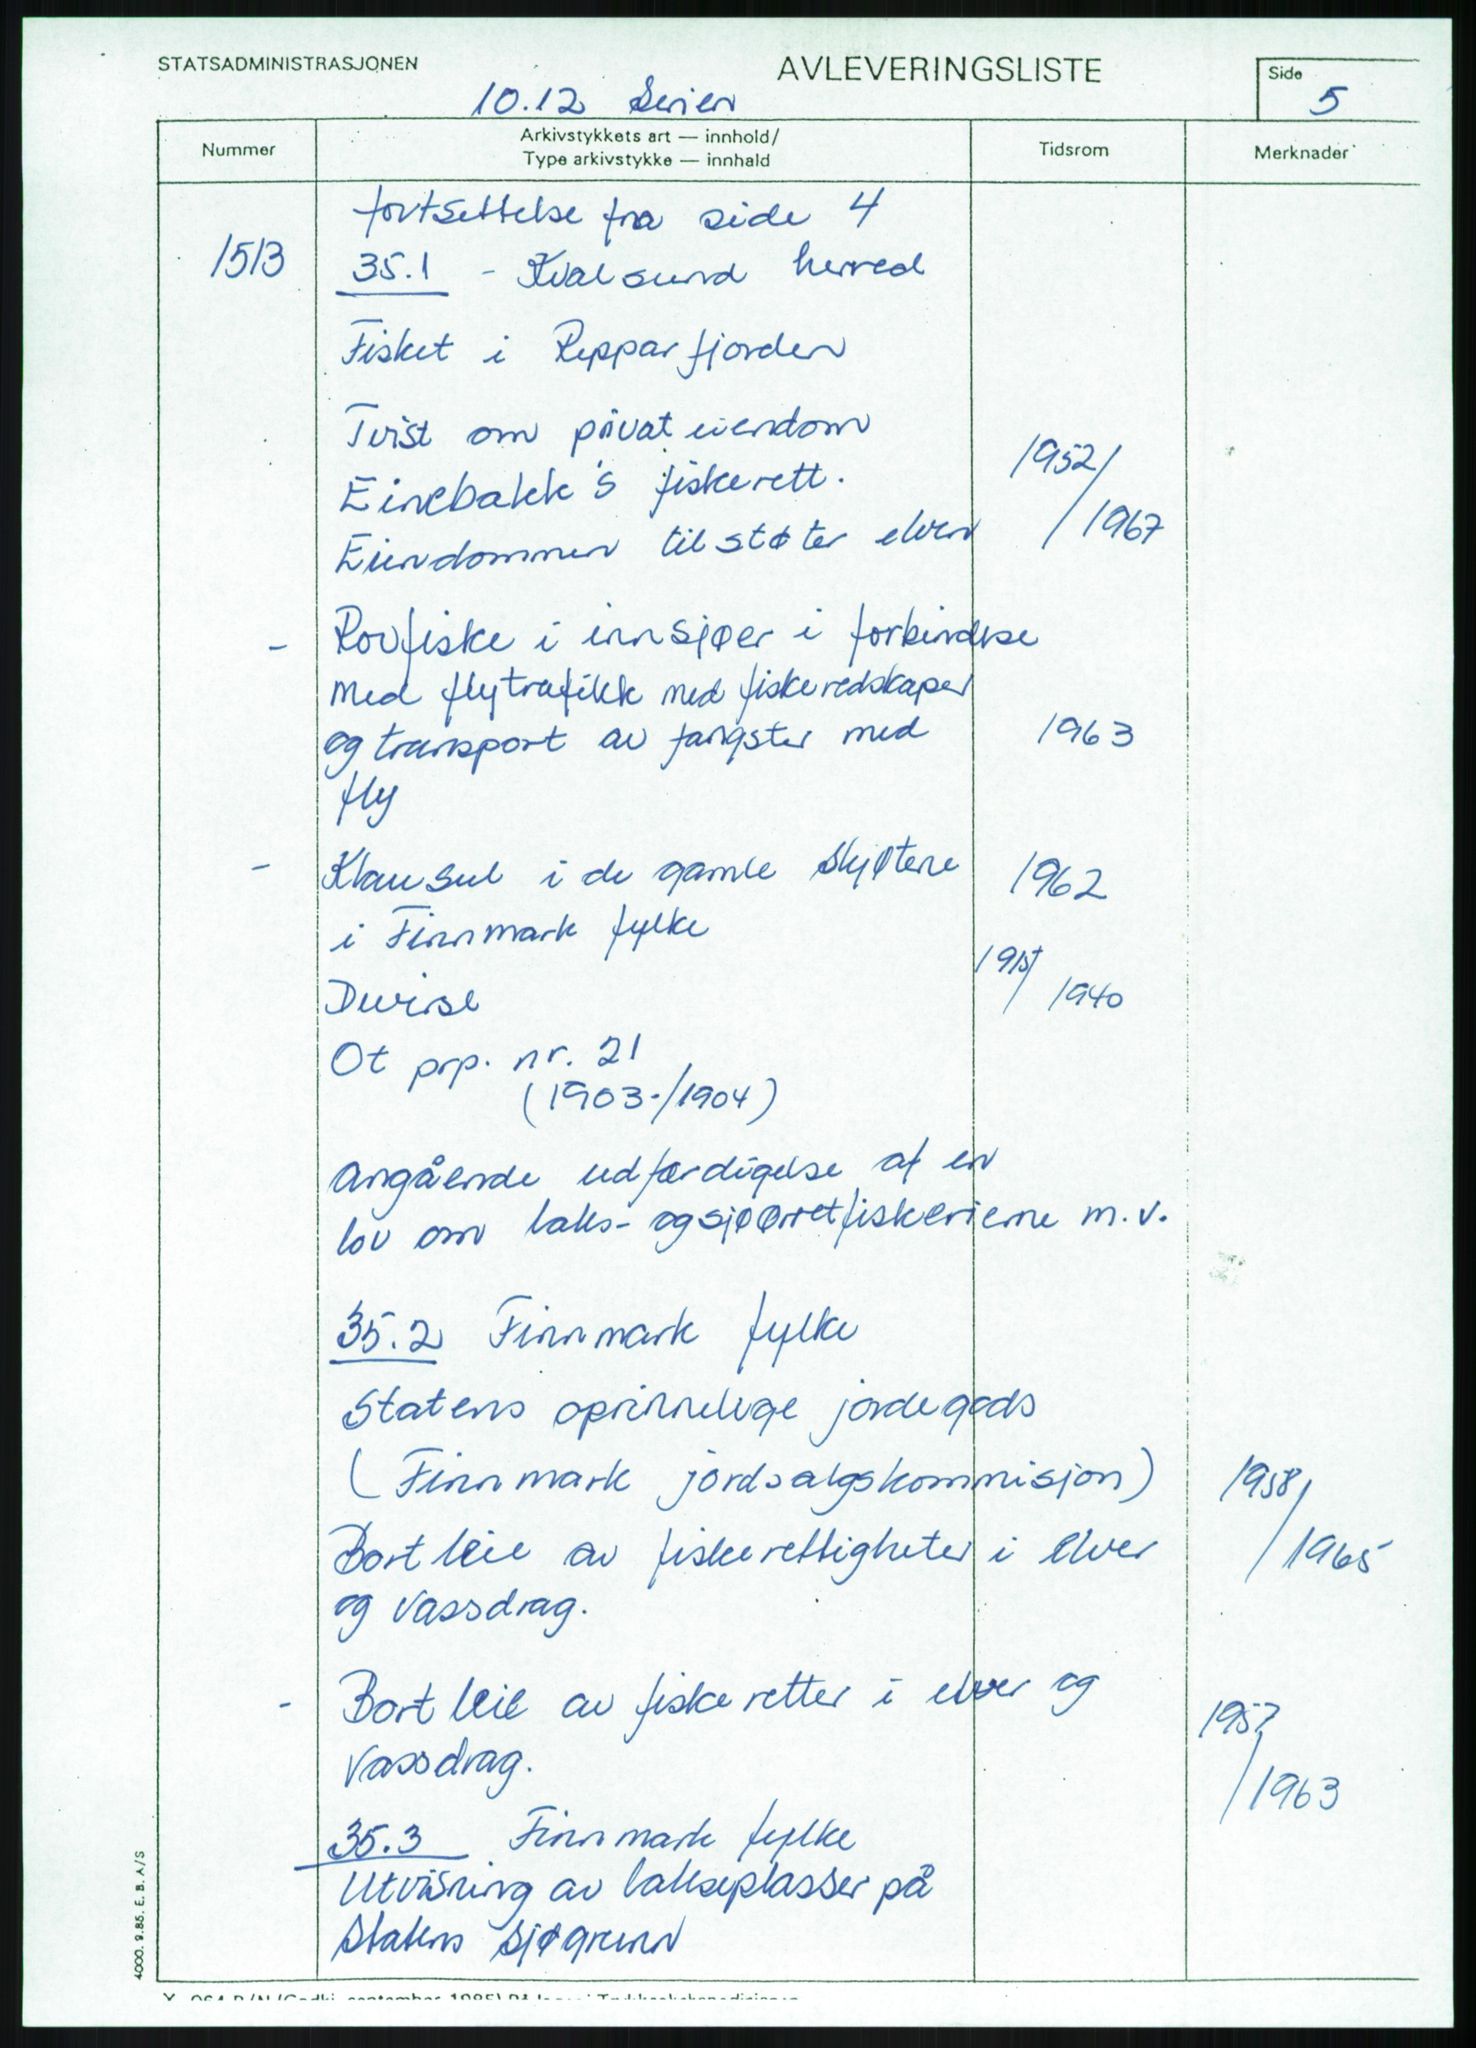 STATSADMINISTRASJONEN
AVLEVERINGSLISTE
Side
5
10.12 Serien
Nummer
Arkivstykkets art — innhold/
Type arkivstykke — innhald
Tidsrom
Merknader
fortsettelse fra side 4
1513 35.1 - Kvalsund herred
Fisket i Repparfjorden
Tvist om privat eiendom
Einebakk's fiskerett. 1952/
Eiendommen tilstøter elven /1967
- Rovfiske i innsjøer i forbindelse
med flytrafikk med fiskeredskaper
og transport av fangster med 1963
fly
- Klausul i de gamle skjøtene 1962
i Finnmark fylke
Diverse 1915/ 1940
Ot prp. nr. 21
(1903-/1904)
angående udfærdigelse af en
lov om laks- og sjøørretfiskerierne m.v.
35.2 Finnmark fylke
Statens oprinnelige jordegods
(Finnmark jordsalgskommisjon) 1958/
Bortleie av fiskerettigheter i elver /1965
og vassdrag.
- Bortleie av fiskeretter i elver og 1957
vassdrag. /1963
35.3 Finnmark fylke
Utvisning av lakseplasser på
Statens sjøgrunn
4000. 9.85. E. B. A/S